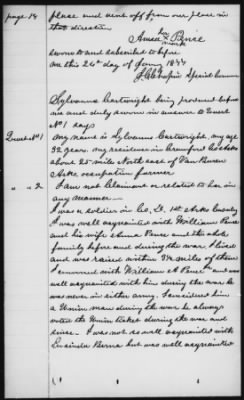 page 14
place and went off from our place in
that direction
her
Amer x Price
mark
sworn to and subscribed to before
me this 24th day of Jany 1877
J. C. Special Commr
Sylvanus Cartwright being produced before
me and duly sworn in answer to Quest
No 1 says
Quest No 1 my name is Sylvanus Cartwright, my age
32 years my residence in Crawford Co Ark
about 25 miles North east of Van Buren
Ark. occupation farmer
" " 2 I am not Claimant or related to her in
any manner
I was a soldier in Co. D. 1st Ark Cavalry
I was well acquainted with William
and his wife and the whole
family before and during the war. I lived
and was raised within 3/4 miles of them
I conversed with William A and was
well acquainted with him during the war he
was never in either army. I considered him
a Union man during the war he always
voted the Union ticket during the war and
since. I was not so well acquainted with
Lucinda but was well acquainted